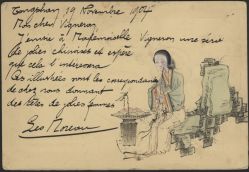 Tongshan, 19 Novembre 1904
Mon cher Vigneron
J'envoie à Mademoiselle Vigneron une série
de jolies chinoises et espère
que cela l'intéressera
Les illustrées sont les correspondantes
de chez nous donnant
des têtes de jolies femmes
Geo Moreau